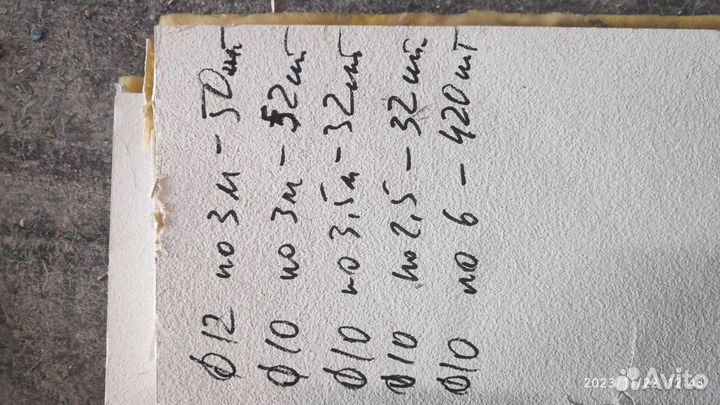 Ø12 по 3 м - 50 шт
Ø10 по 3м - 52 шт
Ø10 по 3,5м - 32 шт
Ø10 по 2,5 - 32 шт
Ø10 по 6 - 420 шт
Avito